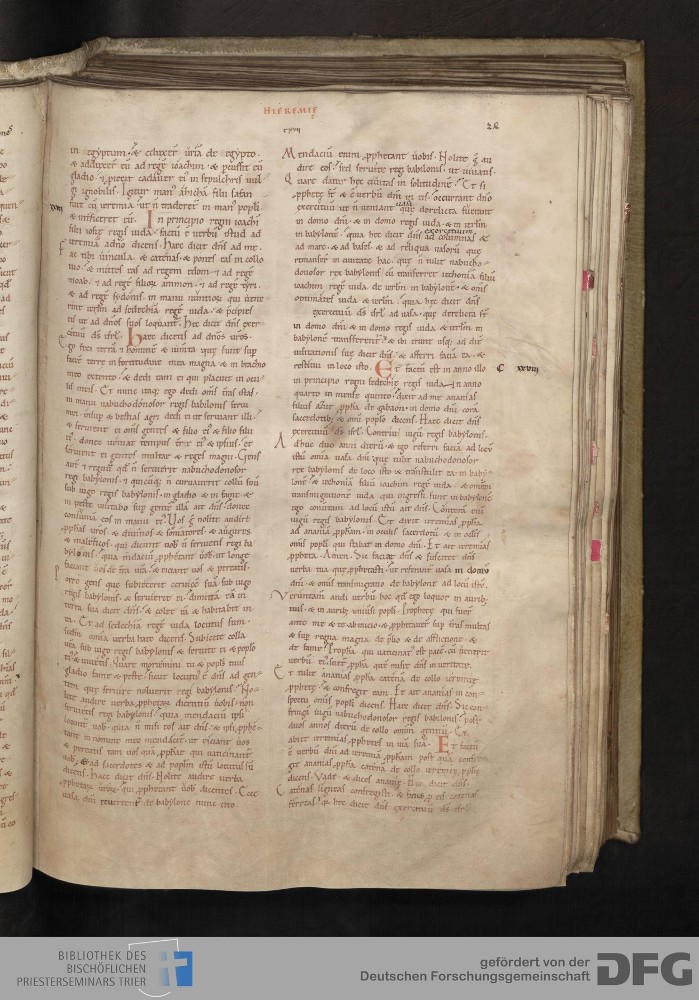 HIEREMIE
in egyptum. & eduxer uriā de egypto.
& adduxer eū ad regē ioachim. & pcussit eū
gladio. & piecit cadauer ei in sepulchris uul
gi ignobilis. Igitur man ahichā filii safan
fuit cū ieremia. ut n traderet in man popli.
& inficeret eū. In principio regni ioachi
filii iosię regis iuda. factū ē uerbū istud ad
ieremiā a dno dicens. Haec dicit dns ad me.
ac tibi uincula. & catenas. & pones eas in collo
tuo. & mittes eas ad regem edom. & ad regē
moab. & ad regē filioȝ ammon. & ad regē tyri.
& ad regē sydonis. in manu nuntioȝ qui uene
runt irtłm ad sedechiā regē iuda. & pcipies
eis ut ad dnos suos loquant. Hec dicit dns exer
cituū ds isrł. haec dicetis ad dnos uros.
go feci terrā & hominē & iumta que sunt sup
faciē terre in fortitudine mea magna. & in brachio
meo extento. & dedi eam ei qui placuit in ocu
lis meis. Et nunc itaq; ego dedi oms tras istas
in manu nabuchodonosor regis babilonis serui
mei. insup & bestias agri dedi ei ut seruiant illi.
& seruient ei oms gentes & filio ei & filio filii
ei. donec ueniat tempus tre ei & ipsius. &
seruient ei gentes multae & reges magni. Gens
aut & regnū qd n seruierit nabuchodonosor
regi babylonis. & quicūq; n curuauerit collū suū
sub iugo regis babylonis. in gladio & in fame. &
in peste uisitabo sup gentē illā ait dns. donec
consumā eos in manu ei. Vos g nolite audire
pphas uros. & diuinos & somniatores. & augures
& maleficos. qui dicunt uob n seruietis regi ba
bylonis. quia mdaciū pphetant uob. ut longe
faciant uos de tra ura. & eiciant uos & pereatis.
orro gens que subiecerit ceruicē suā sub iugo
regis babylonis. & seruierit ei. dimittā eā in
terra sua dicit dns. & colet eā & habitabit in
ea. Et ad sedechiā regē iuda locutus sum.
scdm omia uerba haec dicens. Subicite colla
ura sub iugo regis babylonis & seruite ei & poplo
ei & uiuetis. Quare moriemini tu & popls tuus
gladio fame & peste. sicut locutus ē dns ad gen
tem. que seruire noluerit regi babylonis. No-
lite audire uerba pphetaȝ dicentiū uobis. non
seruietis regi babylonis. quia mendaciū ipsi
locunt uob. quia n misi eos ait dns. & ipsi pphe-
tant in nomine meo mendacit. ut eiciant uos
& pereatis tam uos quā pphae qui uaticinant
uob. & ad sacerdotes & ad poplm istū locutus sū
dicens. Haec dicit dns. Nolite audire uerba
pphetaȝ uroȝ. qui pphetant uob dicentes. Ecce
uasa dni reuertent de babylone nunc cito
xxvii
Mendaciū enim pphetant uobis. Nolite g au
dire eos. sed seruite regi babylonis. ut uiuatis.
Quare datur hec ciuitas in solitudinē. Et si
pphetę st & ē uerbū dni in eis. occurrant dno
exercituū ut n ueniant uasa que derelicta fuerant
in domo dni. & in domo regis iuda. & in irłm
in babylonē. quia hec dicit dns exercituum ad columnas &
ad mare. & ad bases. & ad reliqua uasorū que
remanser in ciuitate hac. que n tulit nabucho-
donosor rex babylonis cū transferret iechoniā filiū
ioachim regē iuda. de irtłm in babylonē. & oms
optimates iuda. & irtłm. quia hec dicit dns
exercituū ds isrł ad uasa. que derelicta st
in domo dni & in domo regis iuda. & irtłm. in
babylonē transferent. & ibi erunt usq; ad diē
uisitationis sue dicit dns. & afferri faciā ea. &
restitui in loco isto. Et factū est in anno illo
in principio regni sedechię regis iuda. in anno
quarto in mense quinto. dixit ad me ananias
filius azur ppha de gabaon. in domo dni corā
sacerdotib. & omi poplo dicens. Haec dicit dns
exercituū ds isrł. Contriui iugū regis babylonis.
Adhuc duo anni dierū. & ego referri faciā ad locū
istū omia uasa dni que tulit nabuchodonosor
rex babylonis de loco isto & transtulit ea in baby-
lonē. & iechoniā filiū ioachim regē iuda. & omem
transmigrationē iuda. qui ingressi sunt in babylonē
ego conuertam ad locū istū ait dns. Conterā eni
iugū regis babylonis. Et dixit ieremias ppha
ad ananiā ppham. in oculis sacerdotū. & in oclis
omis popli qui stabat in domo dni. Et ait ieremias
ppheta. Amen. Sic faciat dns. & suscitet dns
uerba tua que pphetasti. ut referant uasa in domū
dni. & omis transmigratio de babylone ad locū istū.
Verūtam audi uerbū hoc qd ego loquor in aurib;
tuis. & in aurib; uniūsi popli. Prophetę qui fuer
ante me & te ab initio. & pphetauer sup tras multas
& sup regna magna. de plio & de afflictione. &
de fame. Propha qui uaticinat est pacē. cū uenerit
uerbū ei. sciet ppha quē misit dns in ueritate.
Et tulit ananias ppha catenā de collo ieremię
pphetę. & confregit eam. Et ait ananias in con-
spectu omis popli dicens. Haec dicit dns. Sic con-
fringā iugū nabuchodonosor regis babilonis. post
duos annos dierū de collo omiū gentiū. Et
abiit ieremias pphetes in uia sua. Et factū
ē uerbū dni ad ieremiā ppham post quā confre
git ananias ppha catenā de collo ieremię pphę
dicens. Vade & dices ananię. Haec dicit dns.
Catenas ligneas contriuisti. & facies p eis catenas
ferreas. quia hec dicit dns exercituū ds isrł
C xxviii
BIBLIOTHEK DES
BISCHÖFLICHEN
PRIESTERSEMINARS TRIER
gefördert von der
Deutschen Forschungsgemeinschaft
DFG